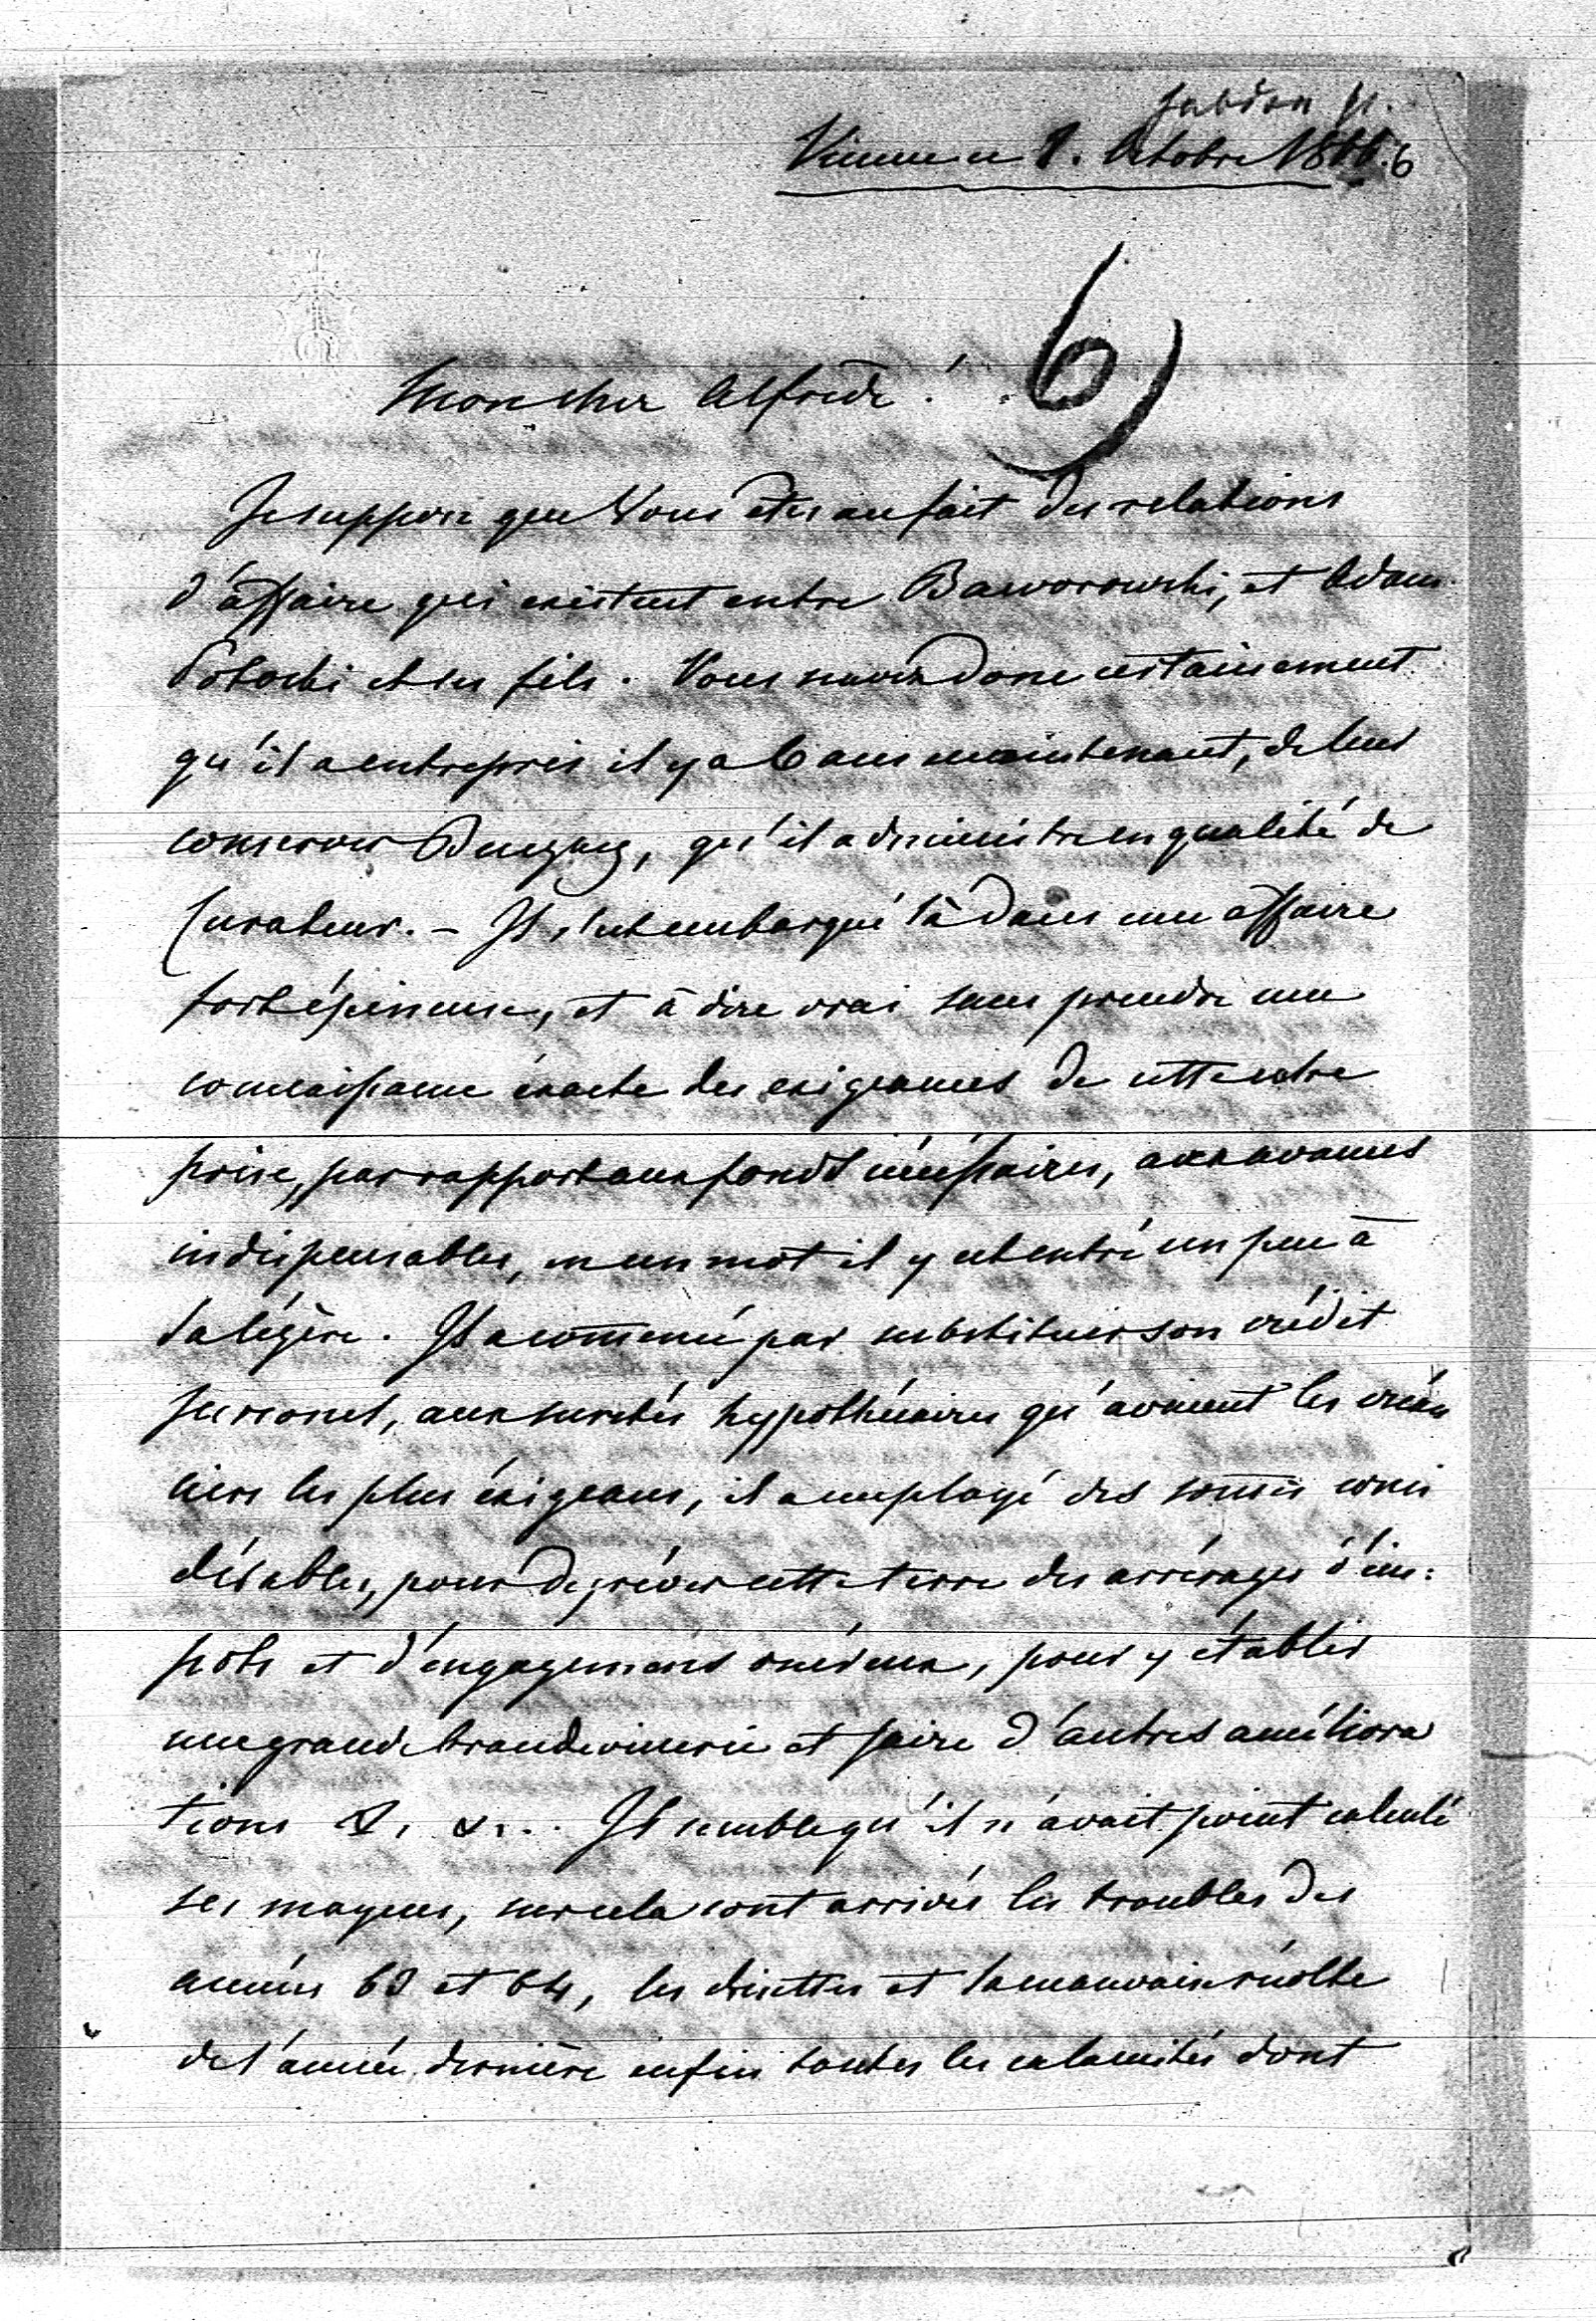 Vienne ce 1. Octobre 1866.
6)
Mon cher Alfred !
Je suppose que Vous êtes au fait des relations
d'affaire qui existent entre Baworowski, et Adam
Potocki et ses fils. Vous savéz donc certainement
qu'il a entrepris il y a 6 ans maintenant, de leur
conserver, qu'il administre en qualité de
Curateur. – Il s'est embarqué là dans une affaire
fort épineuse, et à dire vrai sans prendre une
connaissance éxacte des exigeances de cette entre
prise, par rapport aux fonds nécéssaires, aux avances
indispensables, en un mot il y est entré un peu à
la légère. Il a comencé par substituer son crédit
personel, aux suretés hypothécaires qu'avaient les créan
ciers les plus éxigeans, il a employé des somes consi
dérables, pour dégréver cette terre des arrérages d'im:
pots et d'engagemens onéreux, pour y établir
une grande brandevinerie et faire d'autres améliora
tions &. &... Il semble qu'il n'avait point calculé
ses moyens, sur cela sont arrivés les troubles des
années 63 et 64, les disettes et la mauvaise récolte
de l'année dernière enfin toutes les calamités dont